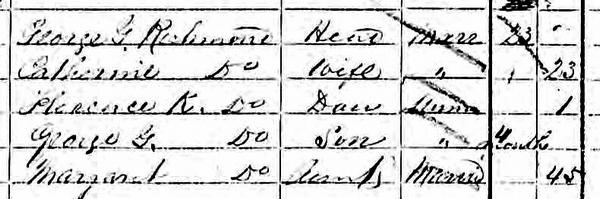 George G. Richmond Head Marr 23
Catherine Do Wife " 23
Florence K. Do Daur Unm 1
George G. Do Son " 4 Month
Margaret Do Aunt Married 45